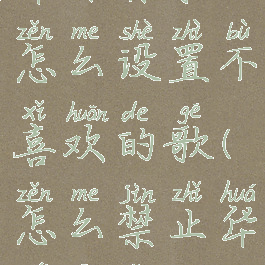 zěn me shè zhì bù
怎么设置不
xǐ huān de gē
喜欢的歌(
zěn me jìn zhǐ huá
怎么禁止华